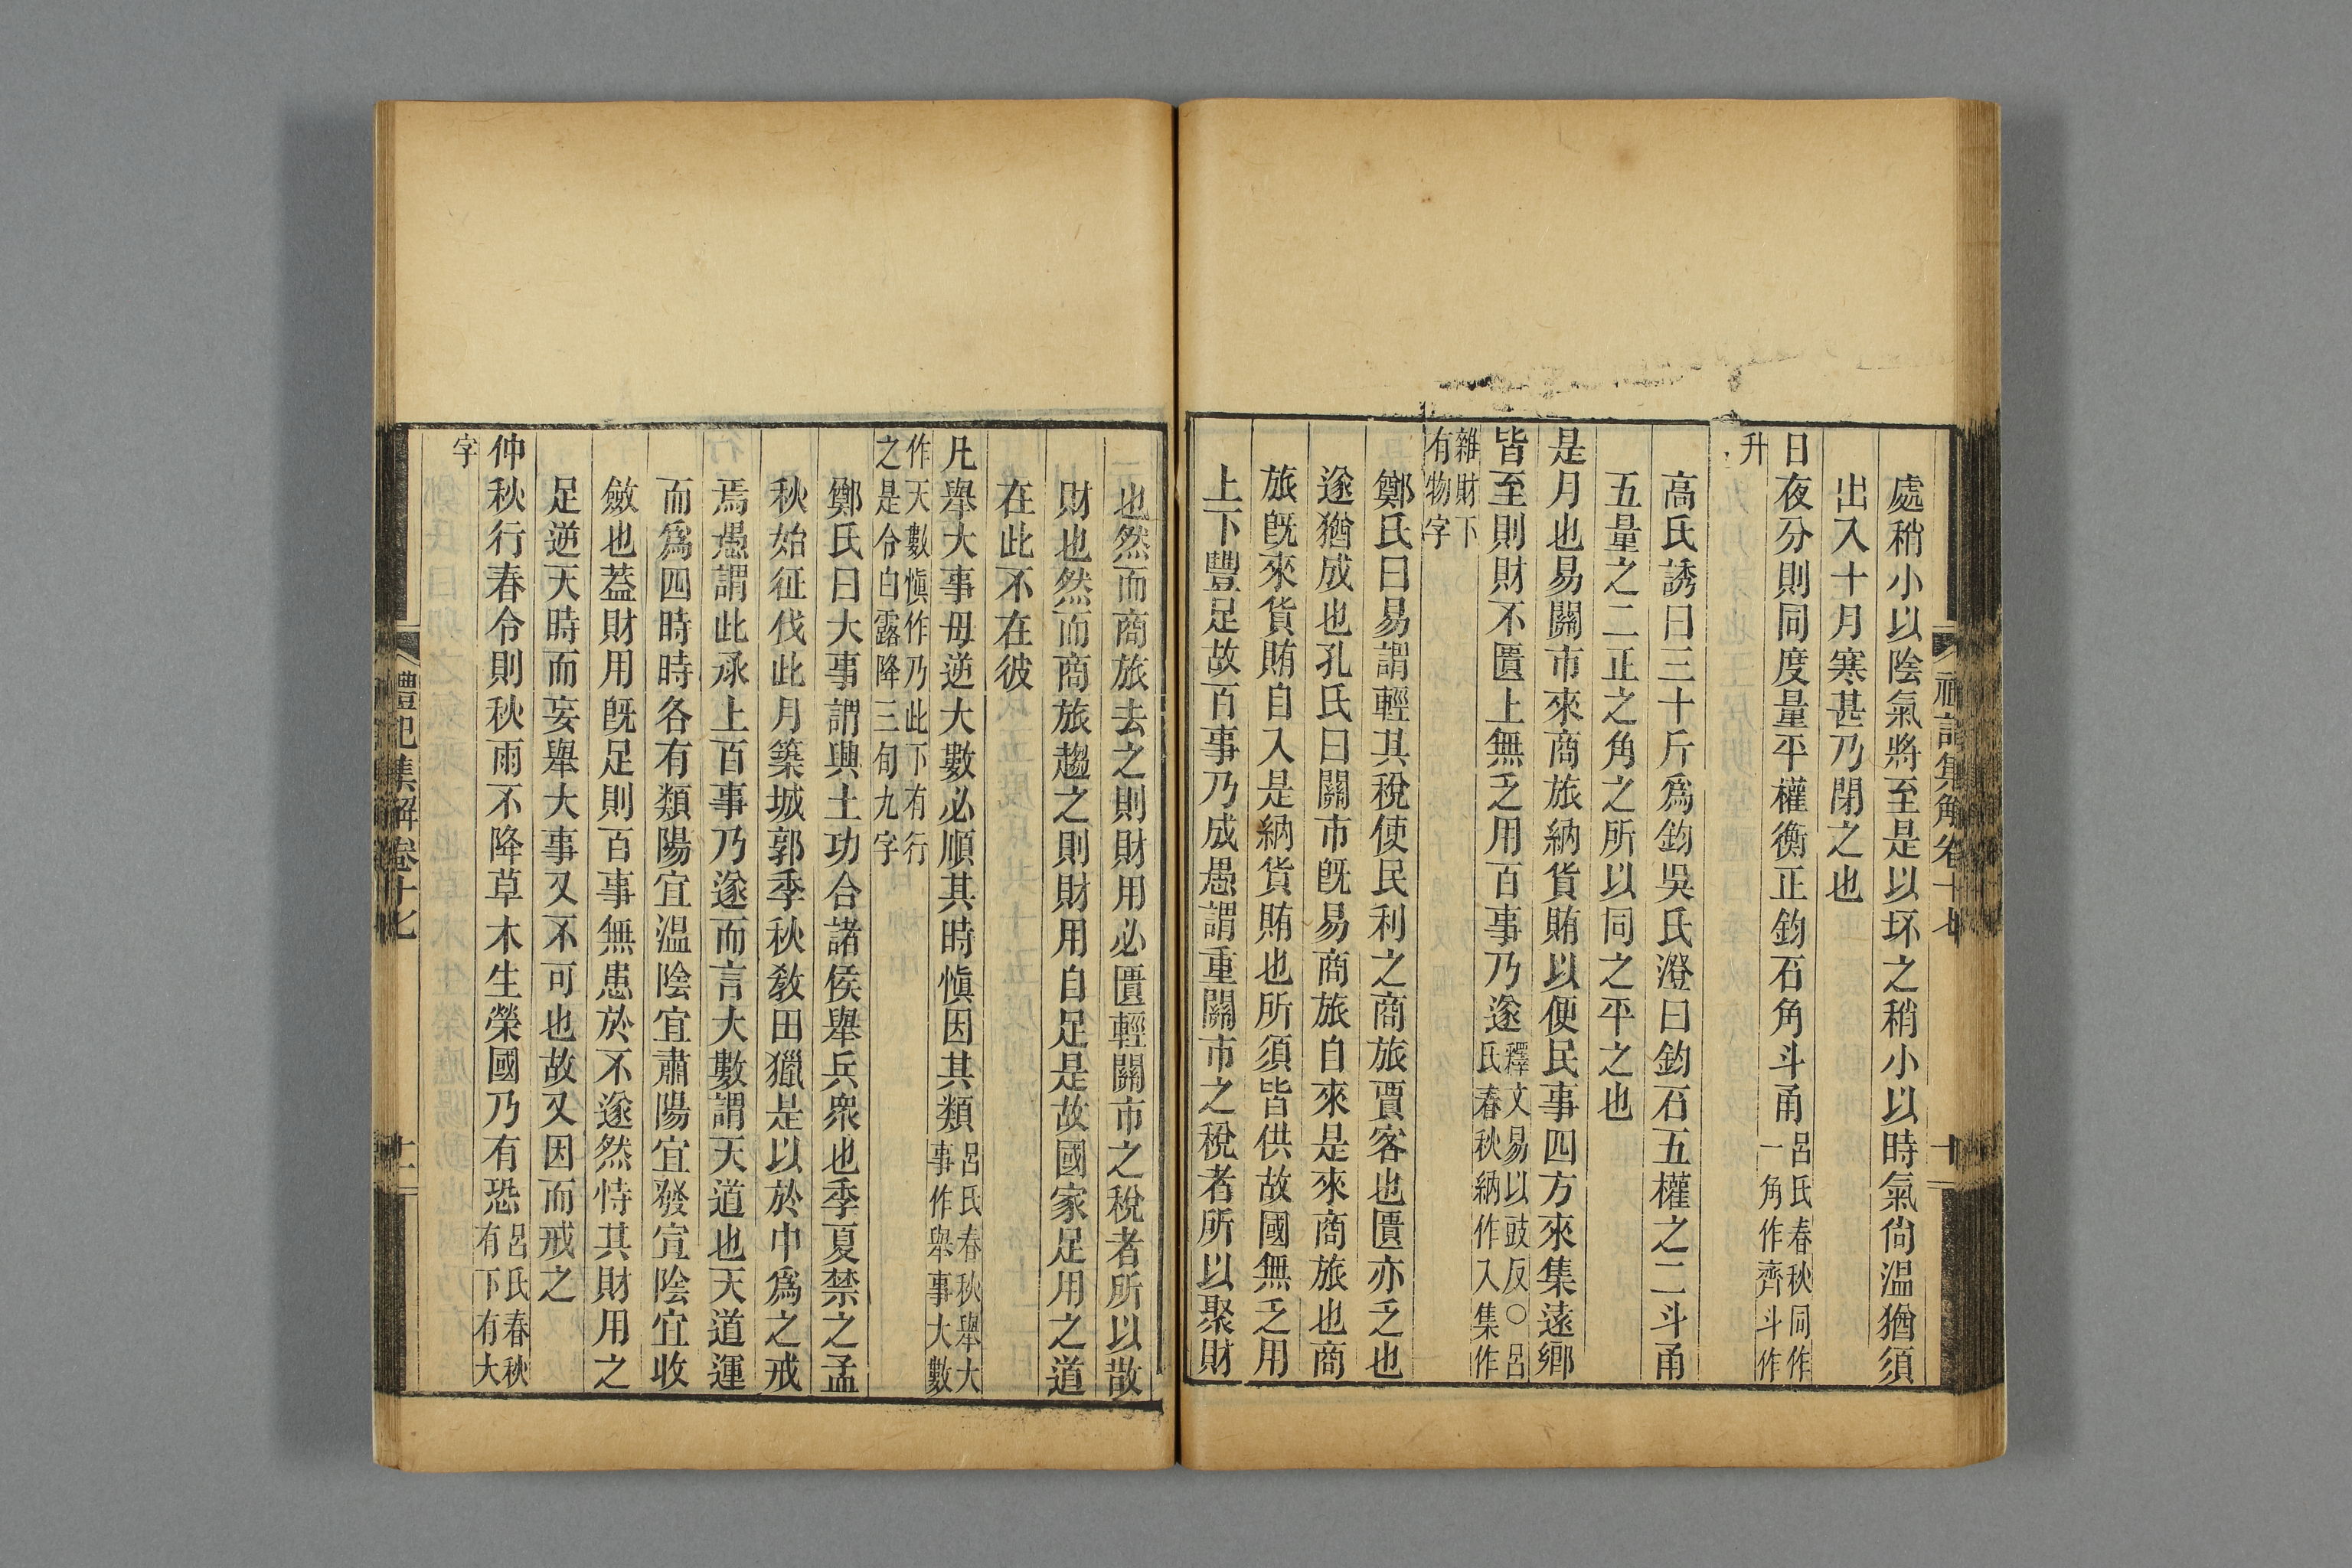 處稍小以陰氣將至是以坏之稍小以時氣尙溫猶須
出入十月寒甚乃閉之也
日夜分則同度量平權衡正鈞石角斗甬呂氏春秋同作一角作齊斗作
升
高氏誘曰三十斤爲鈞吳氏澄曰鈞石五權之二斗甬
五量之二正之角之所以同之平之也
是月也易關市來商旅納貨賄以便民事四方來集遠鄉
皆至則財不匱上無乏用百事乃遂釋文易以豉反○呂氏春秋納作入集作
雜財下有物字
鄭氏曰易謂輕其稅使民利之商旅賈客也匱亦乏也
遂猶成也孔氏曰關市旣易商旅自來是來商旅也商
旅旣來貨賄自入是納貨賄也所須皆供故國無乏用
上下豐足故百事乃成愚謂重關市之稅者所以聚財
禮記集解卷十七
十
也然而商旅去之則財用必匱輕關市之稅者所以散
財也然而商旅趨之則財用自足是故國家足用之道
在此不在彼
凡舉大事毋逆大數必順其時愼因其類呂氏春秋舉大事作舉事大數
作天數愼作乃此下有行之是令白露降三旬九字
鄭氏曰大事謂興土功合諸侯舉兵衆也季夏禁之孟
秋始征伐此月築城郭季秋敎田獵是以於中爲之戒
焉愚謂此承上百事乃遂而言大數謂天道也天道運
而爲四時時各有類陽宜溫陰宜肅陽宜發宣陰宜收
斂也蓋財用旣足則百事無患於不遂然恃其財用之
足逆天時而妄舉大事又不可也故又因而戒之
仲秋行春令則秋雨不降草木生榮國乃有恐呂氏春秋有下有大
字
禮記集解卷十七
十一